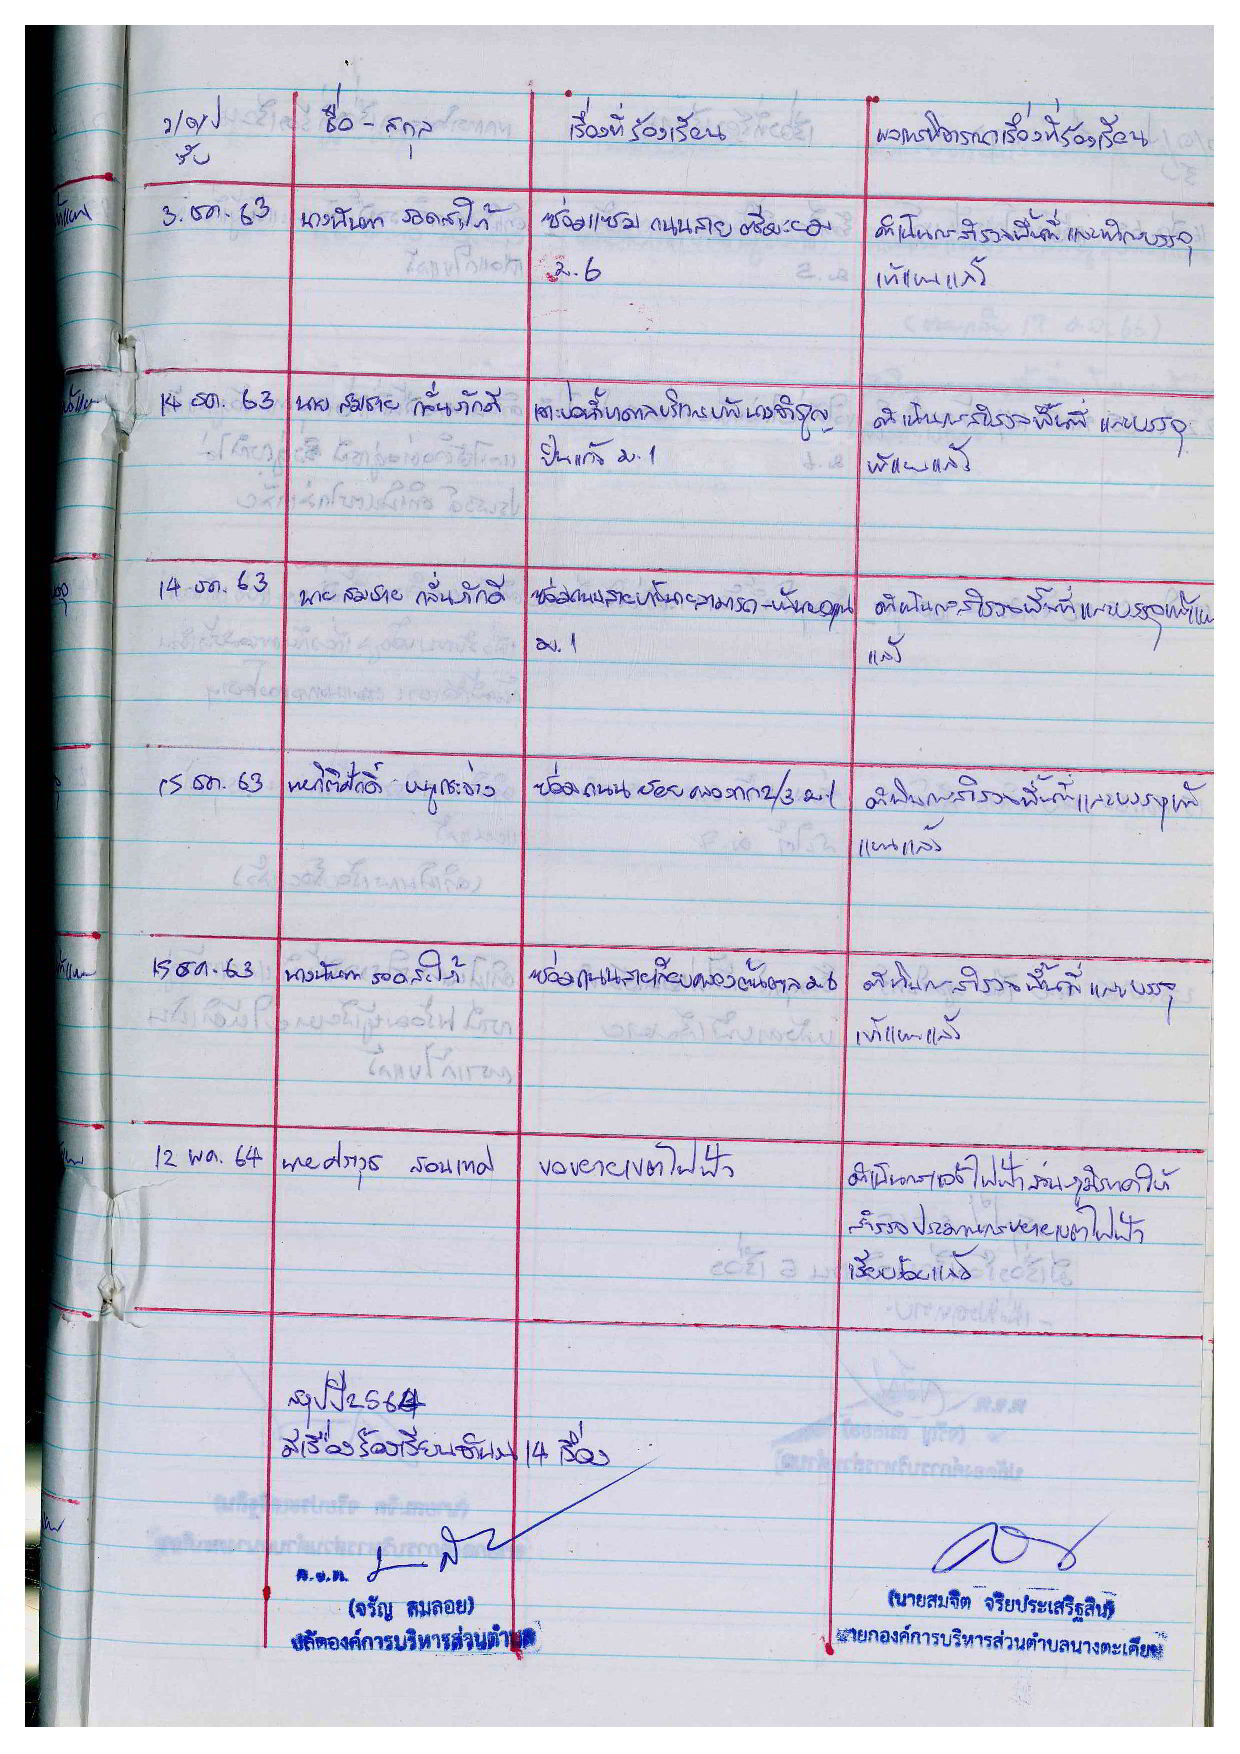 ว/ด/ป ชื่อ - สกุล เรื่องที่ร้องเรียน ผลการพิจารณาเรื่องที่ร้องเรียน
รับ
3 ธค. 63 นางนันทา รอดสะใภ้ ซ่อมแซม ถนนสาย ดำเนินการสำรวจพื้นที่ และบรรจุ
ม.6 เข้าแผนแล้ว
14 ธค. 63 นาย สมชาย กลิ่นภักดี เจาะบ่อน้ำบาดาลบริเวณ ดำเนินการสำรวจพื้นที่ และบรรจุ
ปิ่นแก้ว ม.1 เข้าแผนแล้ว
14 ธค. 63 นาย สมชาย กลิ่นภักดี ซ่อมถนนสายบ้านนายสามารถ - ดำเนินการสำรวจพื้นที่และบรรจุเข้าแผน
ม.1 แล้ว
15 ธค. 63 ซ่อมถนน ซอย ม.1 ดำเนินการสำรวจพื้นที่และบรรจุเข้า
แผนแล้ว
15 ธค. 63 นางนันทา รอดสะใภ้ ซ่อมถนนสายเลียบคลองต้นตาล ม.6 ดำเนินการสำรวจพื้นที่ และบรรจุ
เข้าแผนแล้ว
12 พค. 64 นายศราวุธ สอนเทศ ขอขยายเขตไฟฟ้า ดำเนินการแจ้งไฟฟ้าส่วนภูมิภาคให้
สำรวจประมาณการขยายเขตไฟฟ้า
เรียบร้อยแล้ว
สรุปปี 2564
มีเรื่องร้องเรียนจำนวน 14 เรื่อง
(จรัญ ลมลอย) (นายสมจิต จริยประเสริฐสิน)
ปลัดองค์การบริหารส่วนตำบล นายกองค์การบริหารส่วนตำบลนางตะเคียน